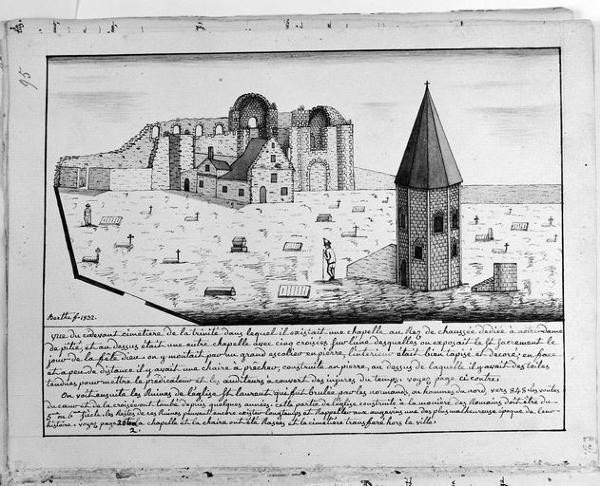 95
Berthe f. 1832.
vue du cidevant cimetière de la trinité dans lequel il existait une chapelle au Rez de chaussée dediée à notre dame
de pitié, et au dessus était une autre chapelle avec cinq croisées sur l'une desquelles on exposait le St sacrement le
jour de la fête dieu. on y montait par un grand escalier en pierre, l'interieur était bien lapisé et decoré; en face
et a peu de distance il y avait une chaire à prêcher, construite en pierre, au dessus de laquelle il y avait des toiles
tendues, pour mettre le prédicateur et les auditeurs a couvert des injures du temps. voyez page ci contre.
On voit ensuite les Ruines de l'église St laurent qui fut brulée par les normands, ou hommes du nord, vers 848 les voutes
du cœur et de la croisée ont tombé depuis quelques années; cette partie de l'église construite à la manière des Romains doit être du
5me ou 6me siècle. les Restes de ces Ruines peuvent encore exister longtemps et Rappeller aux angevins une des plus malheureuse époque de leur
histoire. voyez page la chapelle et la chaire ont été Rasées et le cimetière transferé hors la ville.
2.